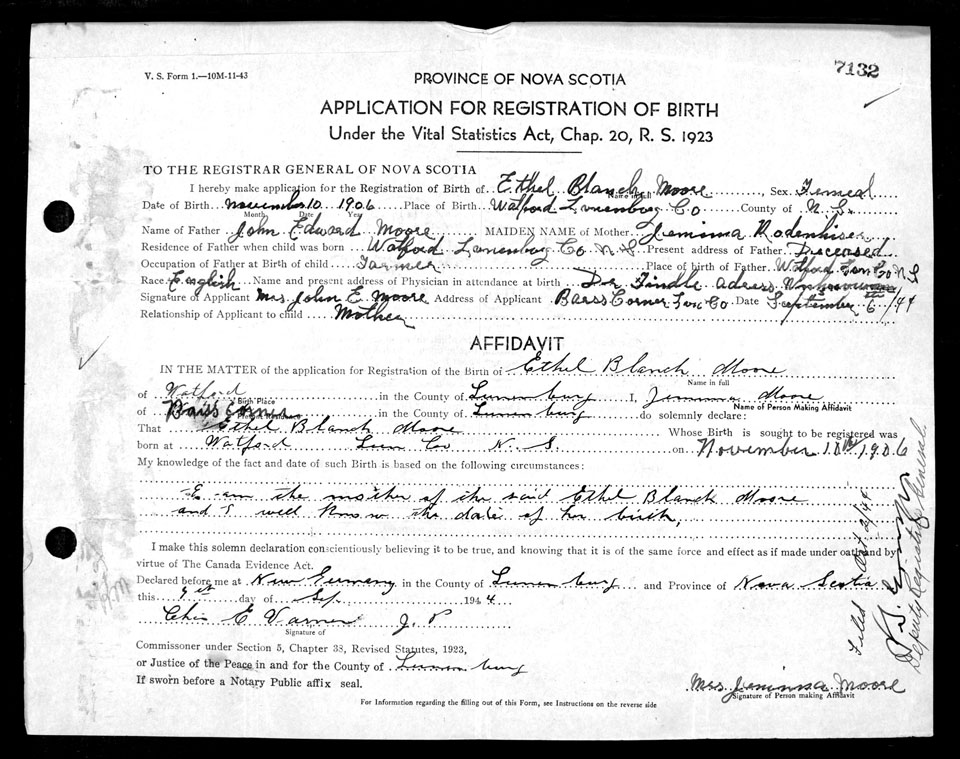 V. S. Form 1.—10M-11-43
7132
PROVINCE OF NOVA SCOTIA
APPLICATION FOR REGISTRATION OF BIRTH
Under the Vital Statistics Act, Chap. 20, R. S. 1923
TO THE REGISTRAR GENERAL OF NOVA SCOTIA
I hereby make application for the Registration of Birth of Ethel Blanch Moore, Sex Femeal
Name in full
Date of Birth November 10 1906 Place of Birth Watford Lunenburg Co County of N. S.
Month Date Year
Name of Father John Edward Moore MAIDEN NAME of Mother Jemima
Residence of Father when child was born Watford Lunenburg Co N S Present address of Father Diseased
Occupation of Father at Birth of child Farmer Place of birth of Father Watford Lun Co N S
Race English Name and present address of Physician in attendance at birth Dr Findle adress
Signature of Applicant Mrs John E Moore Address of Applicant Barss Corner Lun Co Date September 6th / 44
Relationship of Applicant to child Mother
AFFIDAVIT
IN THE MATTER of the application for Registration of the Birth of Ethel Blanch Moore
Name in full
of Watford in the County of Lunenburg I, Jemima Moore
Birth Place
Name of Person Making Affidavit
of Barss Corner in the County of Lunenburg do solemnly declare:
Present Residence
That Ethel Blanch Moore Whose Birth is sought to be registered was
born at Watford Lun Co N. S. on November 10th 1906
My knowledge of the fact and date of such Birth is based on the following circumstances:
I am the mother of the said Ethel Blanch Moore
and I well know the date of her birth,
I make this solemn declaration conscientiously believing it to be true, and knowing that it is of the same force and effect as if made under oath and by
virtue of The Canada Evidence Act.
Declared before me at New Germany in the County of Lunenburg and Province of Nova Scotia
this day of Sep 1944
Chas E Varner J. P
Signature of
Commissioner under Section 5, Chapter 38, Revised Statutes, 1923,
or Justice of the Peace in and for the County of Lunenburg
If sworn before a Notary Public affix seal.
Mrs Jemima Moore
Signature of Person making Affidavit
For Information regarding the filling out of this Form, see Instructions on the reverse side
Filed Oct 2/44
Deputy Registrar General.